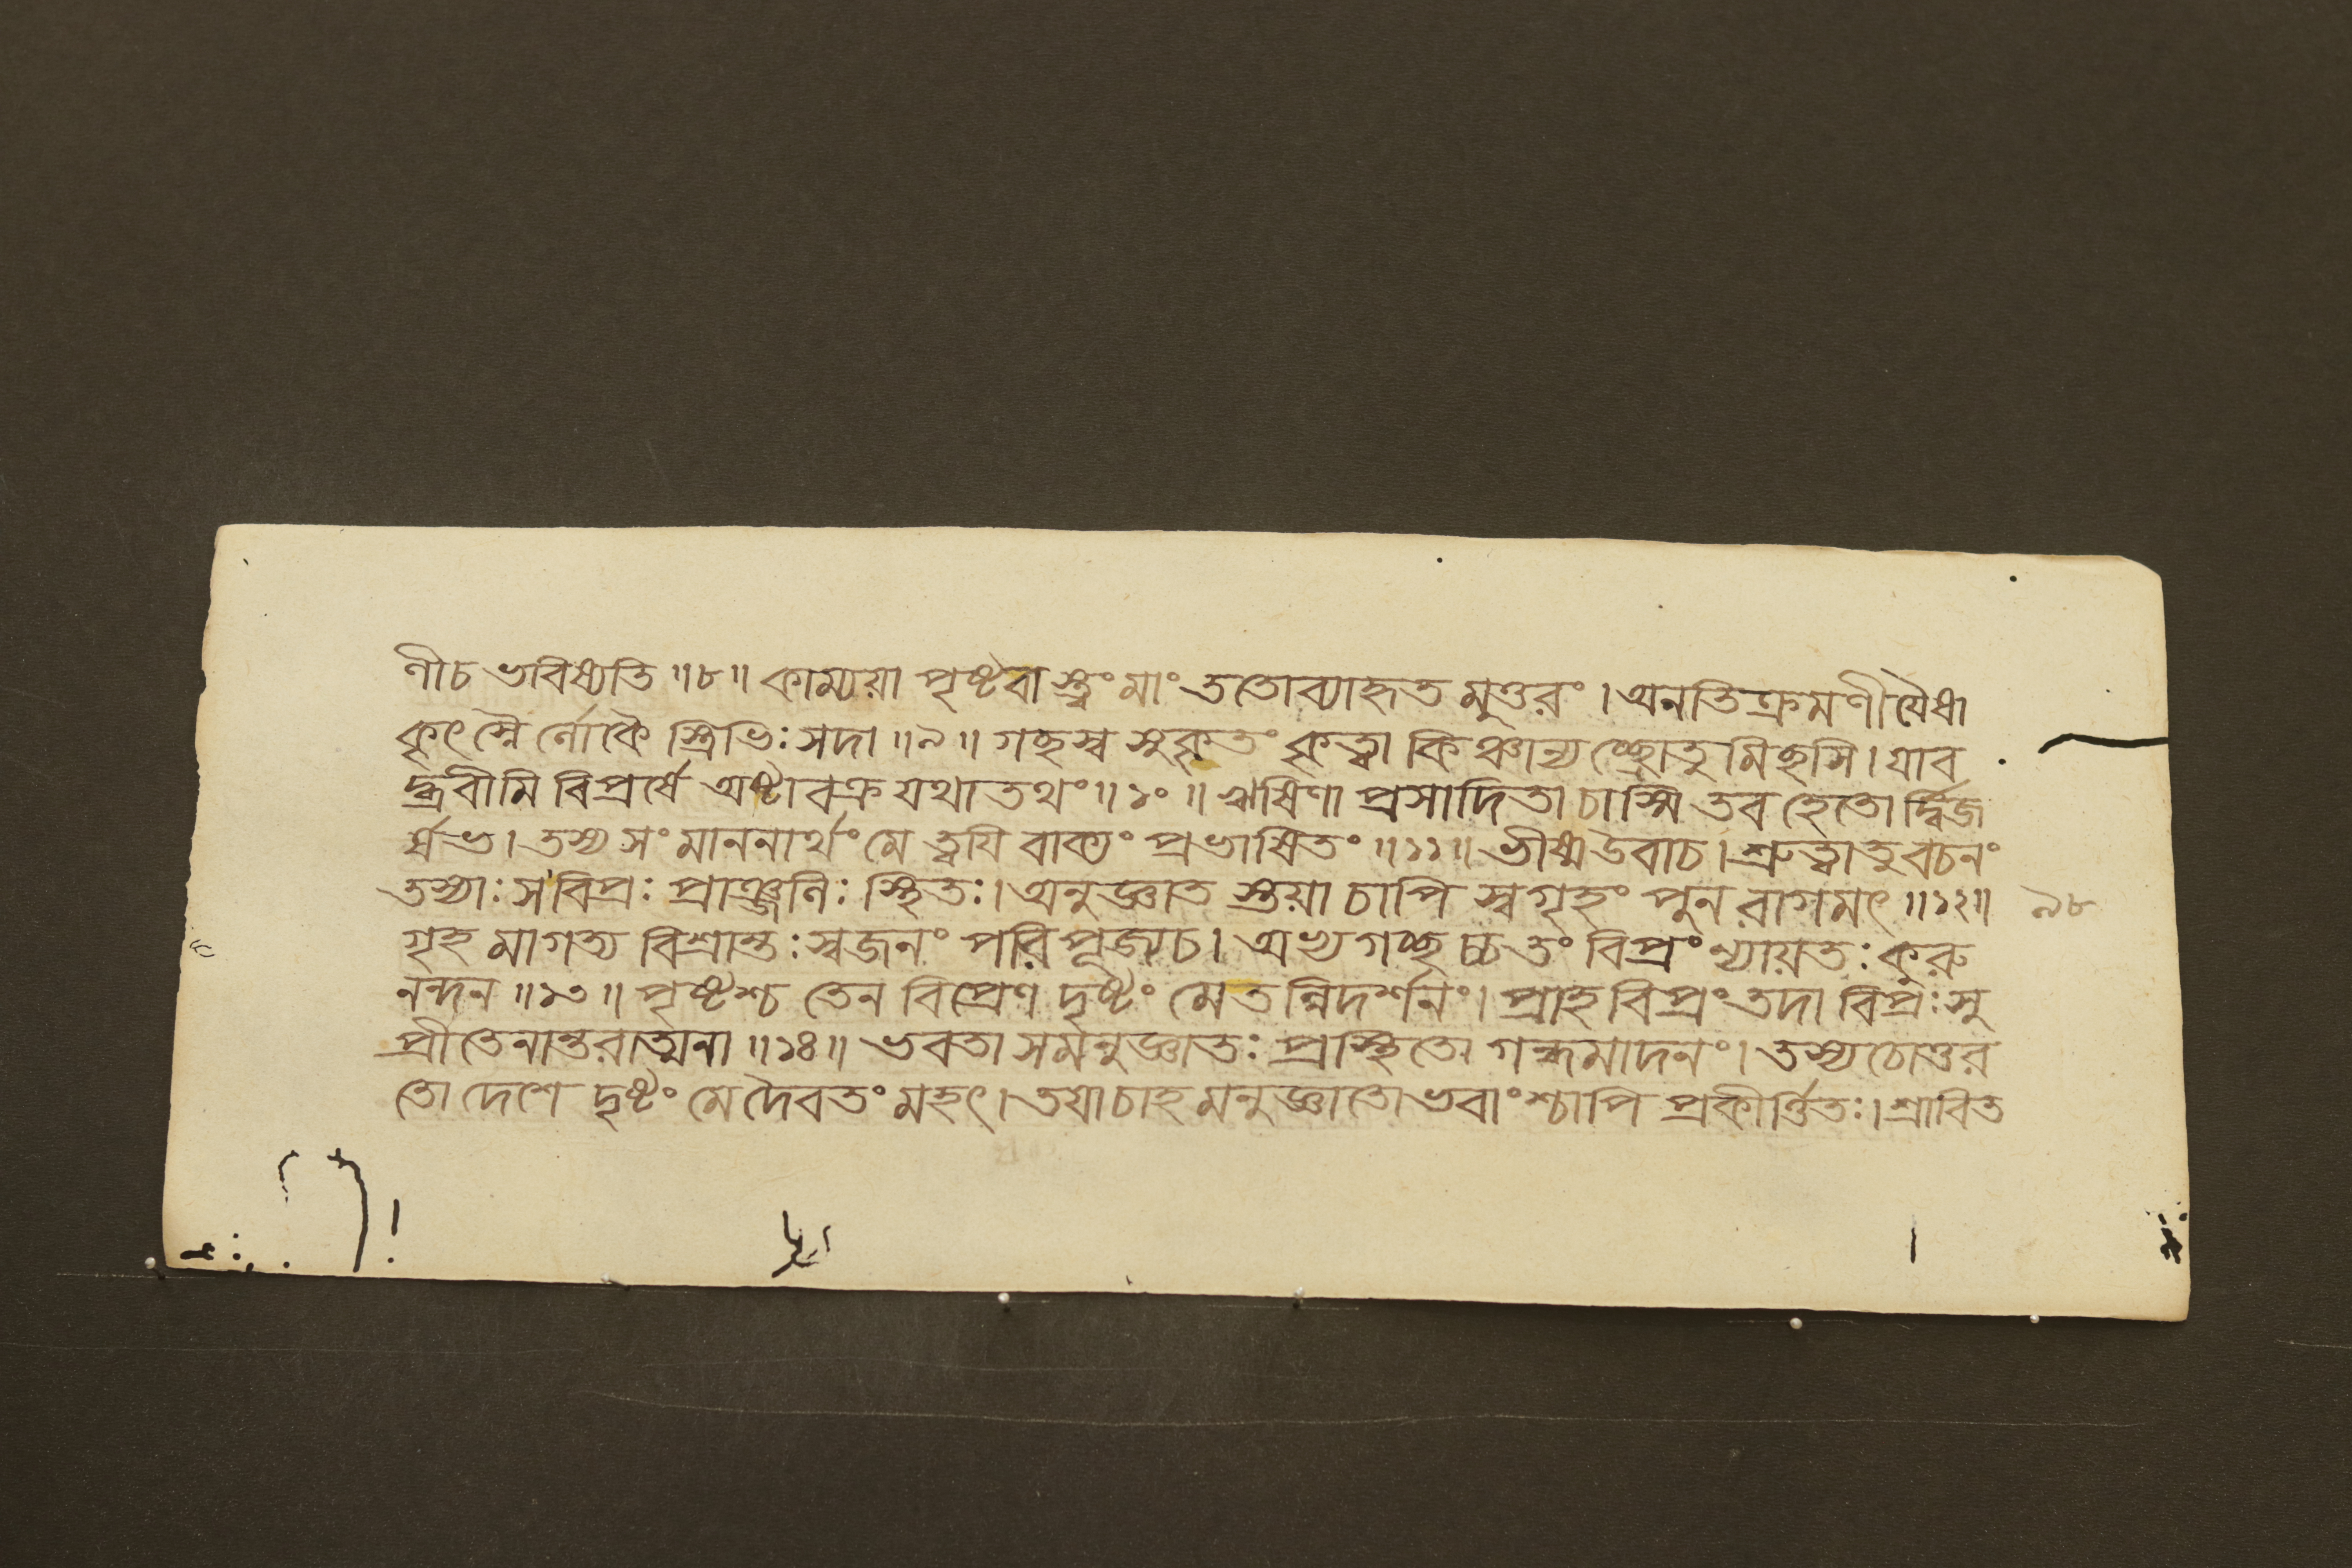 ণীচ ভবিষ্যতি ॥৮॥ কাম্যয়া পৃষ্টবা স্ত্বং মাং ততোব্যাহৃত মুত্তরং । অনতিক্রমণীয়ৈষা
কৃৎস্নৈ র্লোকৈ স্ত্রিভিঃ সদা ॥৯॥ গচ্ছস্ব সুকৃতং কৃত্বা কিঞ্চান্য চ্ছ্রোতু মিচ্ছসি । যাব
দ্ব্রবীমি বিপ্রর্ষে অষ্টাবক্র যথাতথং ॥১০॥ ঋষিণা প্রসাদিতা চাস্মি তব হেতো র্দ্বিজ
র্ষভ । তস্য সংমাননার্থং মে ত্বয়ি বাক্যং প্রভাষিতং ॥১১॥ ভীষ্মউবাচ । শ্রুত্বাতু বচনং
তস্যাঃ স বিপ্রঃ প্রাঞ্জলিঃ স্থিতঃ । অনুজ্ঞাত স্তয়া চাপি স্বগৃহং পুন রাগমৎ ॥১২॥ ৯৮
গৃহ মাগত্য বিশ্রান্তঃ স্বজনং পরিপূজ্যচ । অভ্যগচ্ছ চ্চতং বিপ্রং ন্যায়তঃ কুরু
নন্দন ॥১৩॥ পৃষ্টশ্চ তেন বিপ্রেণ দৃষ্টং মেত ন্নিদর্শনং । প্রাহ বিপ্রং তদা বিপ্রঃ সু
প্রীতেনান্তরাত্মনা ॥১৪॥ ভবতা সমনুজ্ঞাতঃ প্রস্থিতো গন্ধমাদনং । তস্যচোত্তর
তো দেশে দৃষ্টং মে দৈবতং মহৎ । তয়াচাহ মনুজ্ঞাতো ভবাংশ্চাপি প্রকীর্ত্তিতঃ । শ্রাবিত